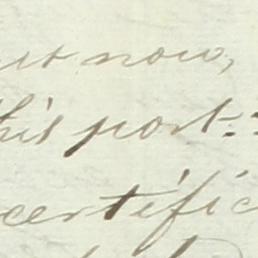 but now,
this port:
certific